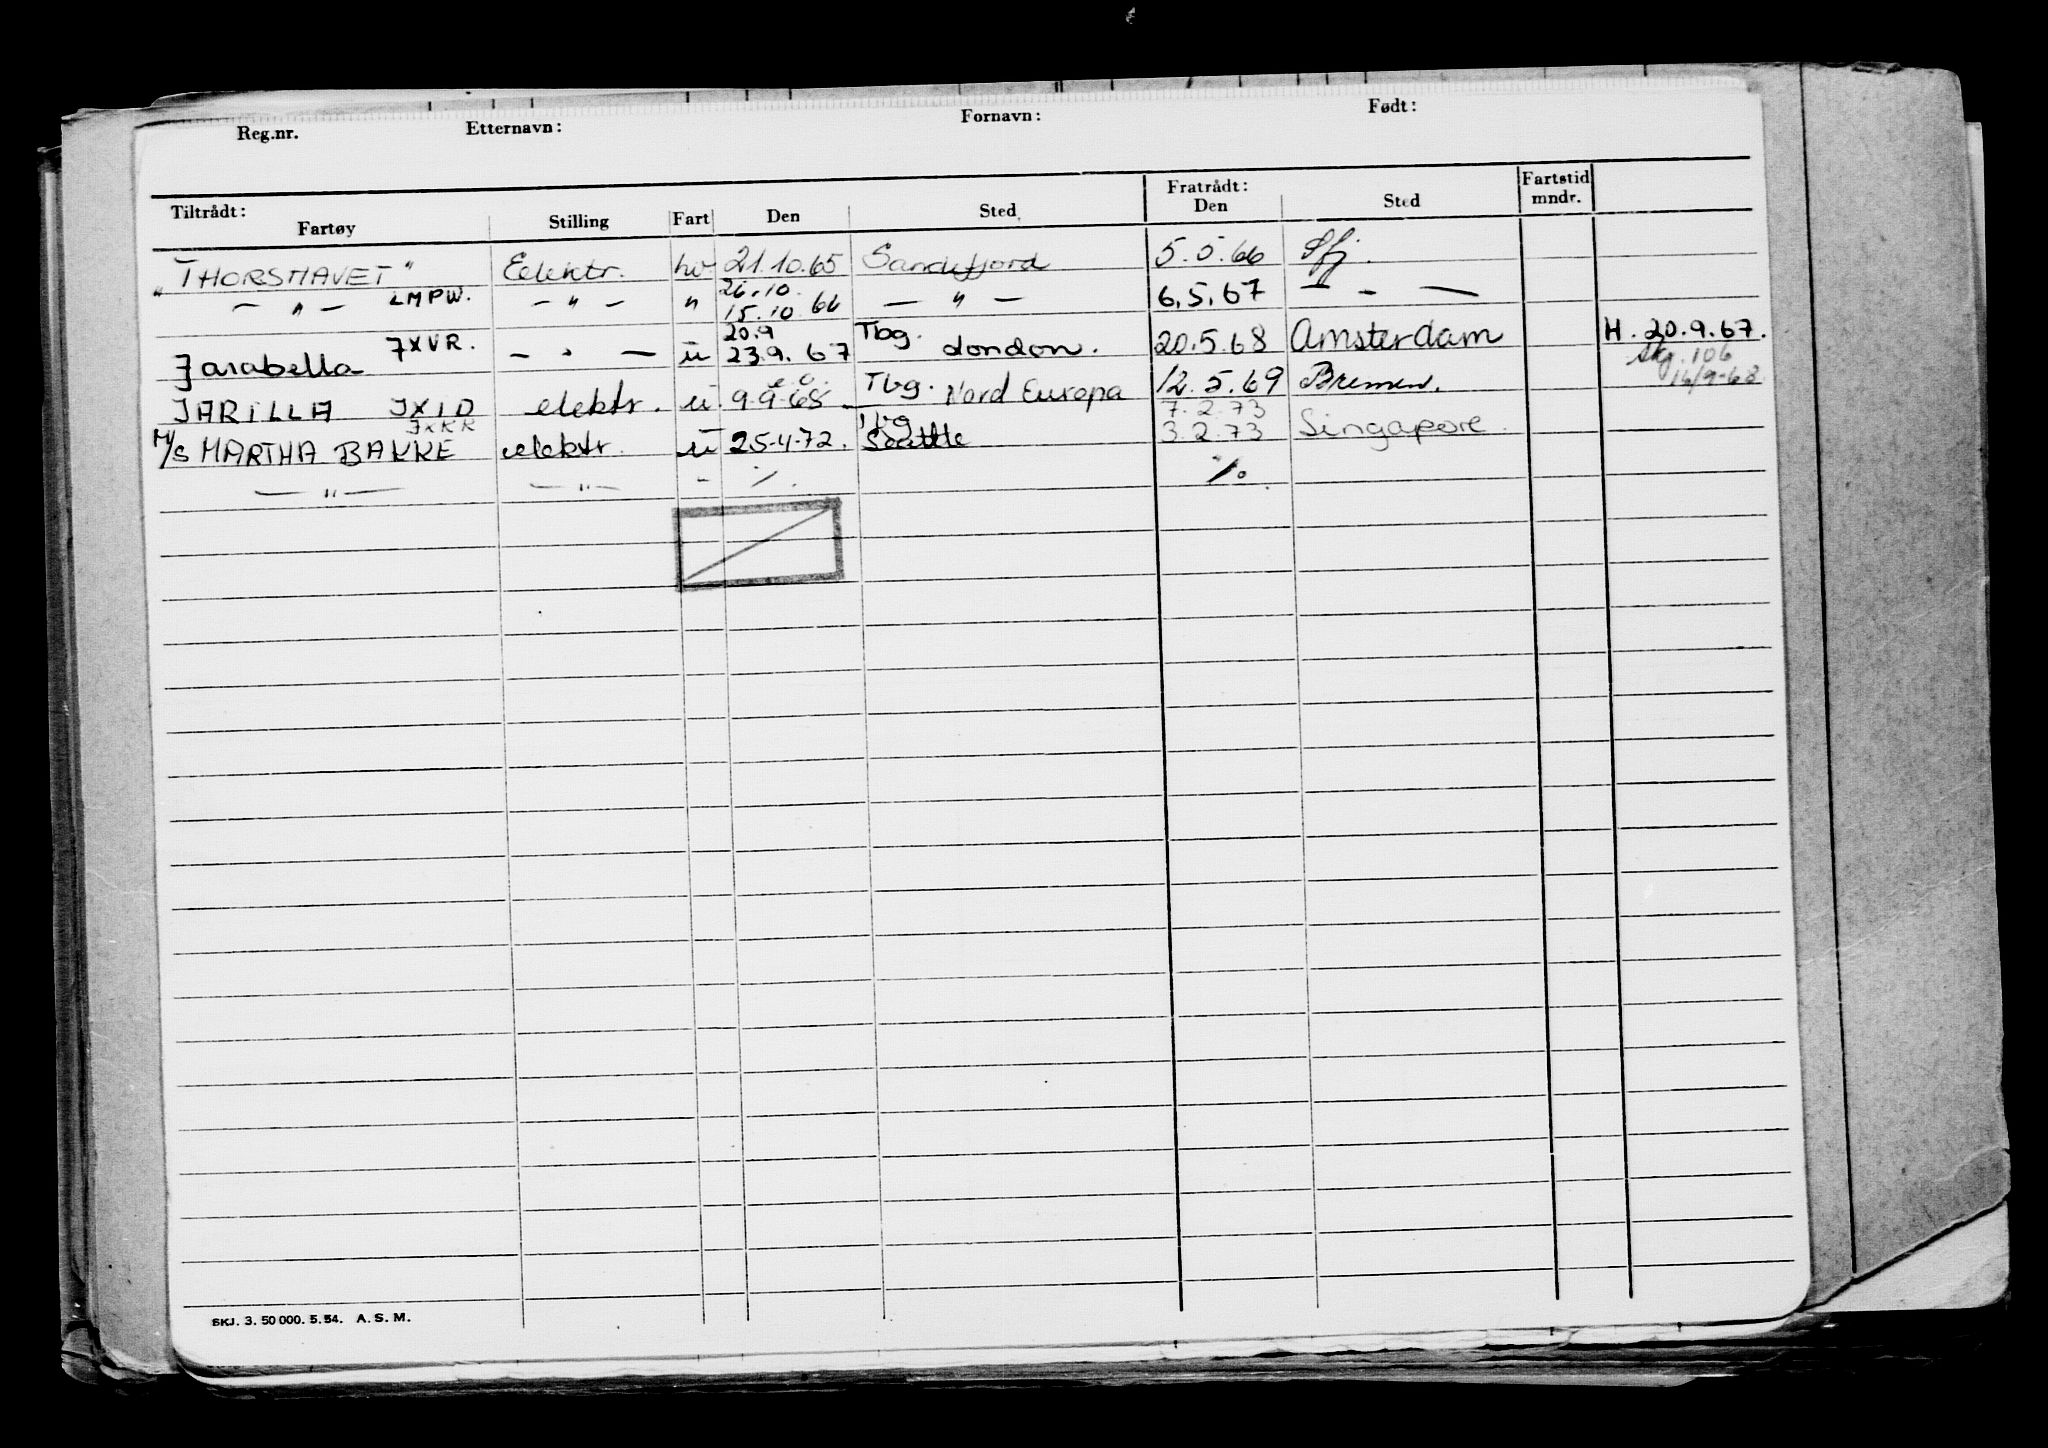 Reg.nr. Etternavn: Fornavn: Født:
Tiltrådt: Fratrådt: Fartstid
Fartøy Stilling Fart Den Sted Den Sted mndr.
"THORSHAVET" Elektr. hv 21.10.65 Sandefjord 5.5.66 Sfj.
26.10.
— " — LMPW. — " — " 15.10.66 — " — 6.5.67 — - —
20.9 Tbg.
Jarabella JXVR. — " — u 23.9.67 London. 20.5.68 Amsterdam H. 20.9.67.
Skj. 106
16/9-68
JARILLA JXID elektr. u 9.9.68. Tbg. Nord Europa 12.5.69 Bremen.
JXKR Tbg 7.2.73
M/S MARTHA BAKKE elektr. u 25-4-72. Seattle 3.2.73 Singapore.
— " — — " — - /. /.
SKJ. 3. 50 000. 5. 54. A. S. M.